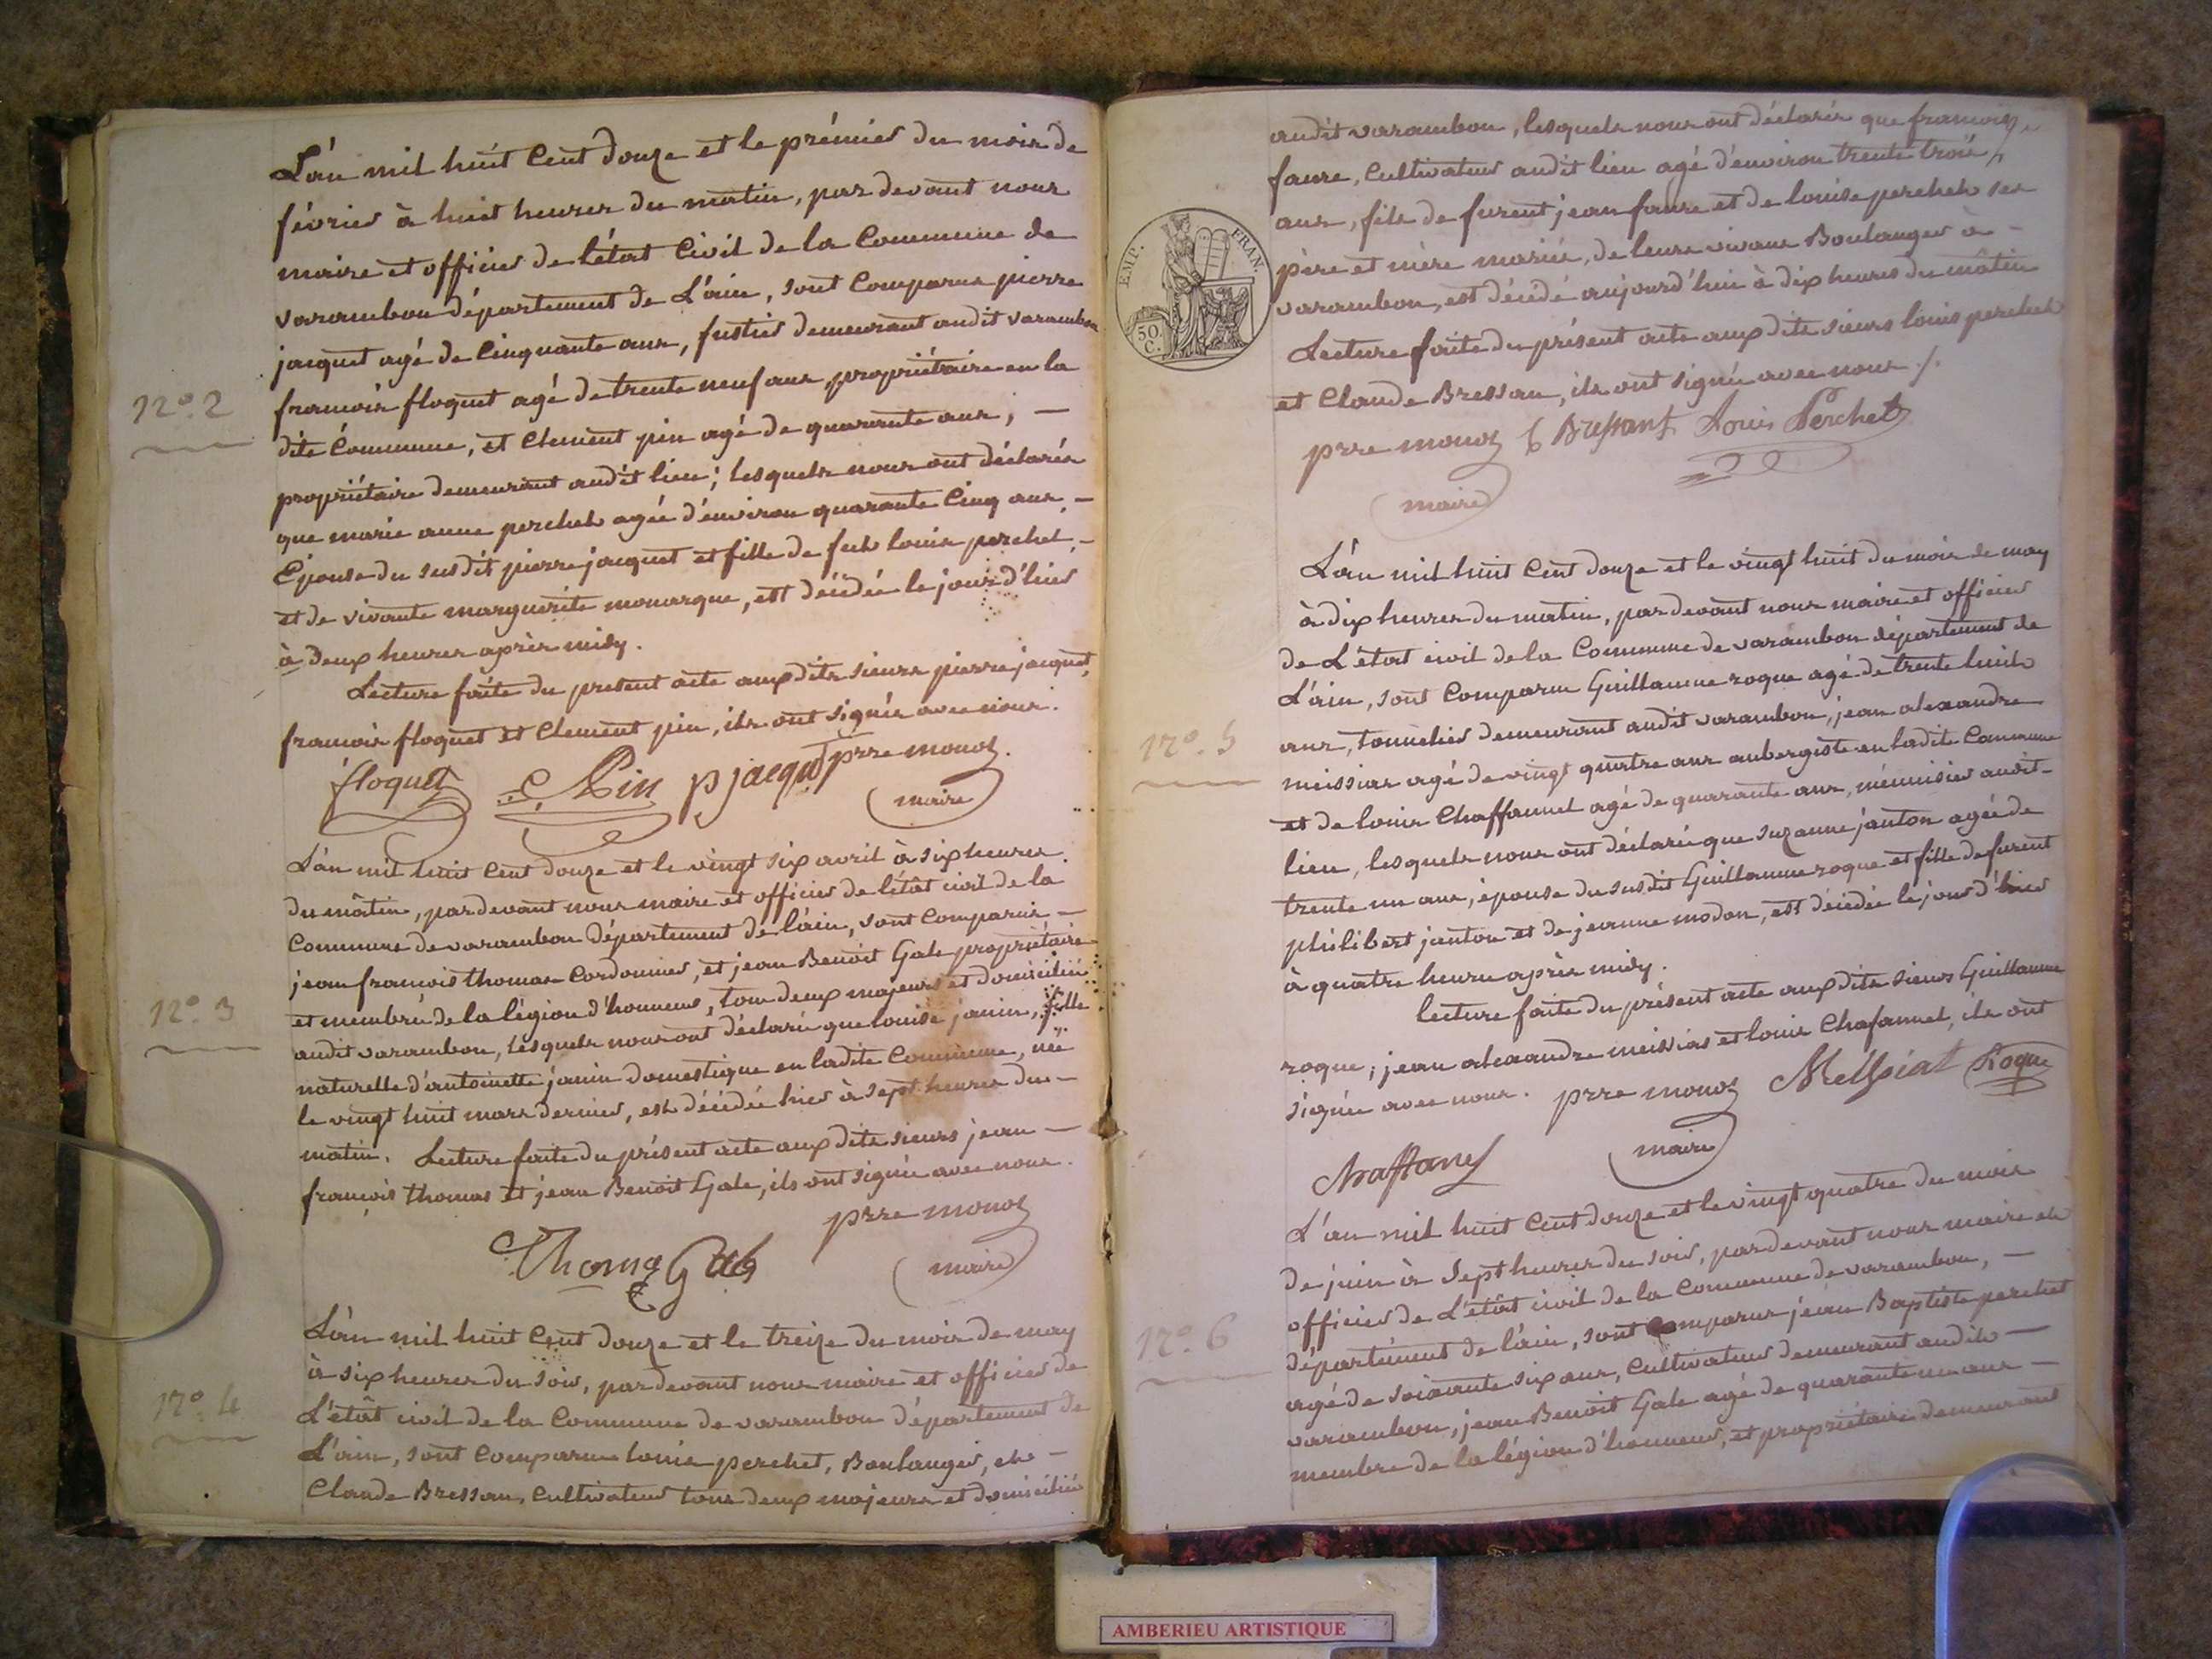 L'an mil huit Cent douze et le prémier du mois de
février à huit heures du matin, par devant nous
maire et officier de l'état Civil de la Commune de
varambon département de L'ain, sont Comparus pierre
jacquet agé de Cinquante ans, fustier demeurant audit varambon
francois floquet agé de trente neuf ans propriétaire en la
N.º 2
dite Commune, et Clement pin agé de quarante ans, —
propriétaire demeurant audit lieu; lesquels nous ont déclarés
que marie anne perchet agée d'environ quarante Cinq ans, —
Epouse du susdit pierre jacquet et fille de feu louis perchet, —
et de vivante marguerite monarque, est décédée le jour d'hier
à Deux heures après midy.
Lecture faite du present acte aux dits sieurs pierre jacquet,
francois floquet et Clement pin, ils ont signés avec nous.
floquet C Pin p jacquet prre monoz
maire
L'an mil huit Cent douze et le vingt six avril à six heures
du mâtin, par devant nous maire et officier de l'état civil de la
Commune de varambon département de l'ain, sont Comparus —
jean françois thomas Cordonnier, et jean Benoit Gale propriétaire
et membre de la légion d'honneur, tous deux majeurs et domiciliés
N.º 3
audit varambon, lesquels nous ont déclaré que louise janin, fille
naturelle d'antoinette janin domestique en ladite Commune, née
le vingt huit mars dernier, est décédée hier à sept heures du —
matin. Lecture faite du présent acte aux dits sieurs jean —
françois thomas et jean Benoit Gale, ils ont signés avec nous.
prre monoz
Thomas Gale
maire
L'an mil huit Cent douze et le treize du mois de may
à six heures du soir, par devant nous maire et officier de
N.º 4
L'état civil de la Commune de varambon département de
L'ain, sont Comparus louis perchet, Boulanger, et —
Claude Bressan, Cultivateur tous deux majeurs et domiciliés
audit varambon, lesquels nous ont déclarés que francois
faure, Cultivateur audit lieu agé d'environ trente trois
ans, fils de furent jean faure et de louise perchet ses
père et mère mariés, de leurs vivans Boulanger à —
varambon, est décédé aujourd'hui à dix heures du mâtin
Lecture faite du présent acte aux dits sieurs louis perchet
et Claude Bressan, ils ont signés avec nous ./.
prre monoz C Bressant Louis Perchet
maire
EMP. FRAN.
50 C.
L'an mil huit Cent douze et le vingt huit du mois de may
à dix heures du matin, par devant nous maire et officier
de L'état civil de la Commune de varambon département de
L'ain, sont Comparu Guillaume roque agé de trente huit
N.º 5
ans, tonnelier demeurant audit varambon, jean alexandre
meissias agé de vingt quatre ans aubergiste en ladite Commune
et de louis Chaffannel agé de quarante ans, ménuisier audit-
lieu, lesquels nous ont déclaré que suzanne janton agée de
trente un ans, épouse du susdit Guillaume roque et fille de furent
philibert janton et de jeanne modon, est décédée le jour d'hier
à quatre heure après midy.
lecture faite du présent acte aux dits sieurs Guillaume
roque, jean alexandre meissias et louis Chafannel, ils ont
signés avec nous. prre monoz Meissiat Roque
maire
Chaffanel
L'an mil huit Cent douze et le vingt quatre du mois
de juin à sept heures du soir, par devant nous maire et
officier de L'état civil de la Commune de varambon, —
N.º 6
département de l'ain, sont Comparus jean Baptiste perchet
agé de soixante six ans, Cultivateur demeurant audit —
varambon, jean Benoit Gale agé de quarante un ans —
membre de la légion d'honneur, et propriétaire demeurant
AMBERIEU ARTISTIQUE